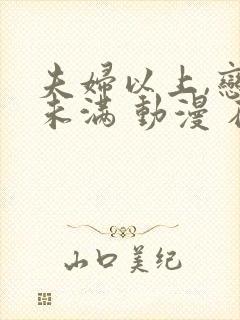 夫婦以上,戀
未滿 動漫
山口美纪